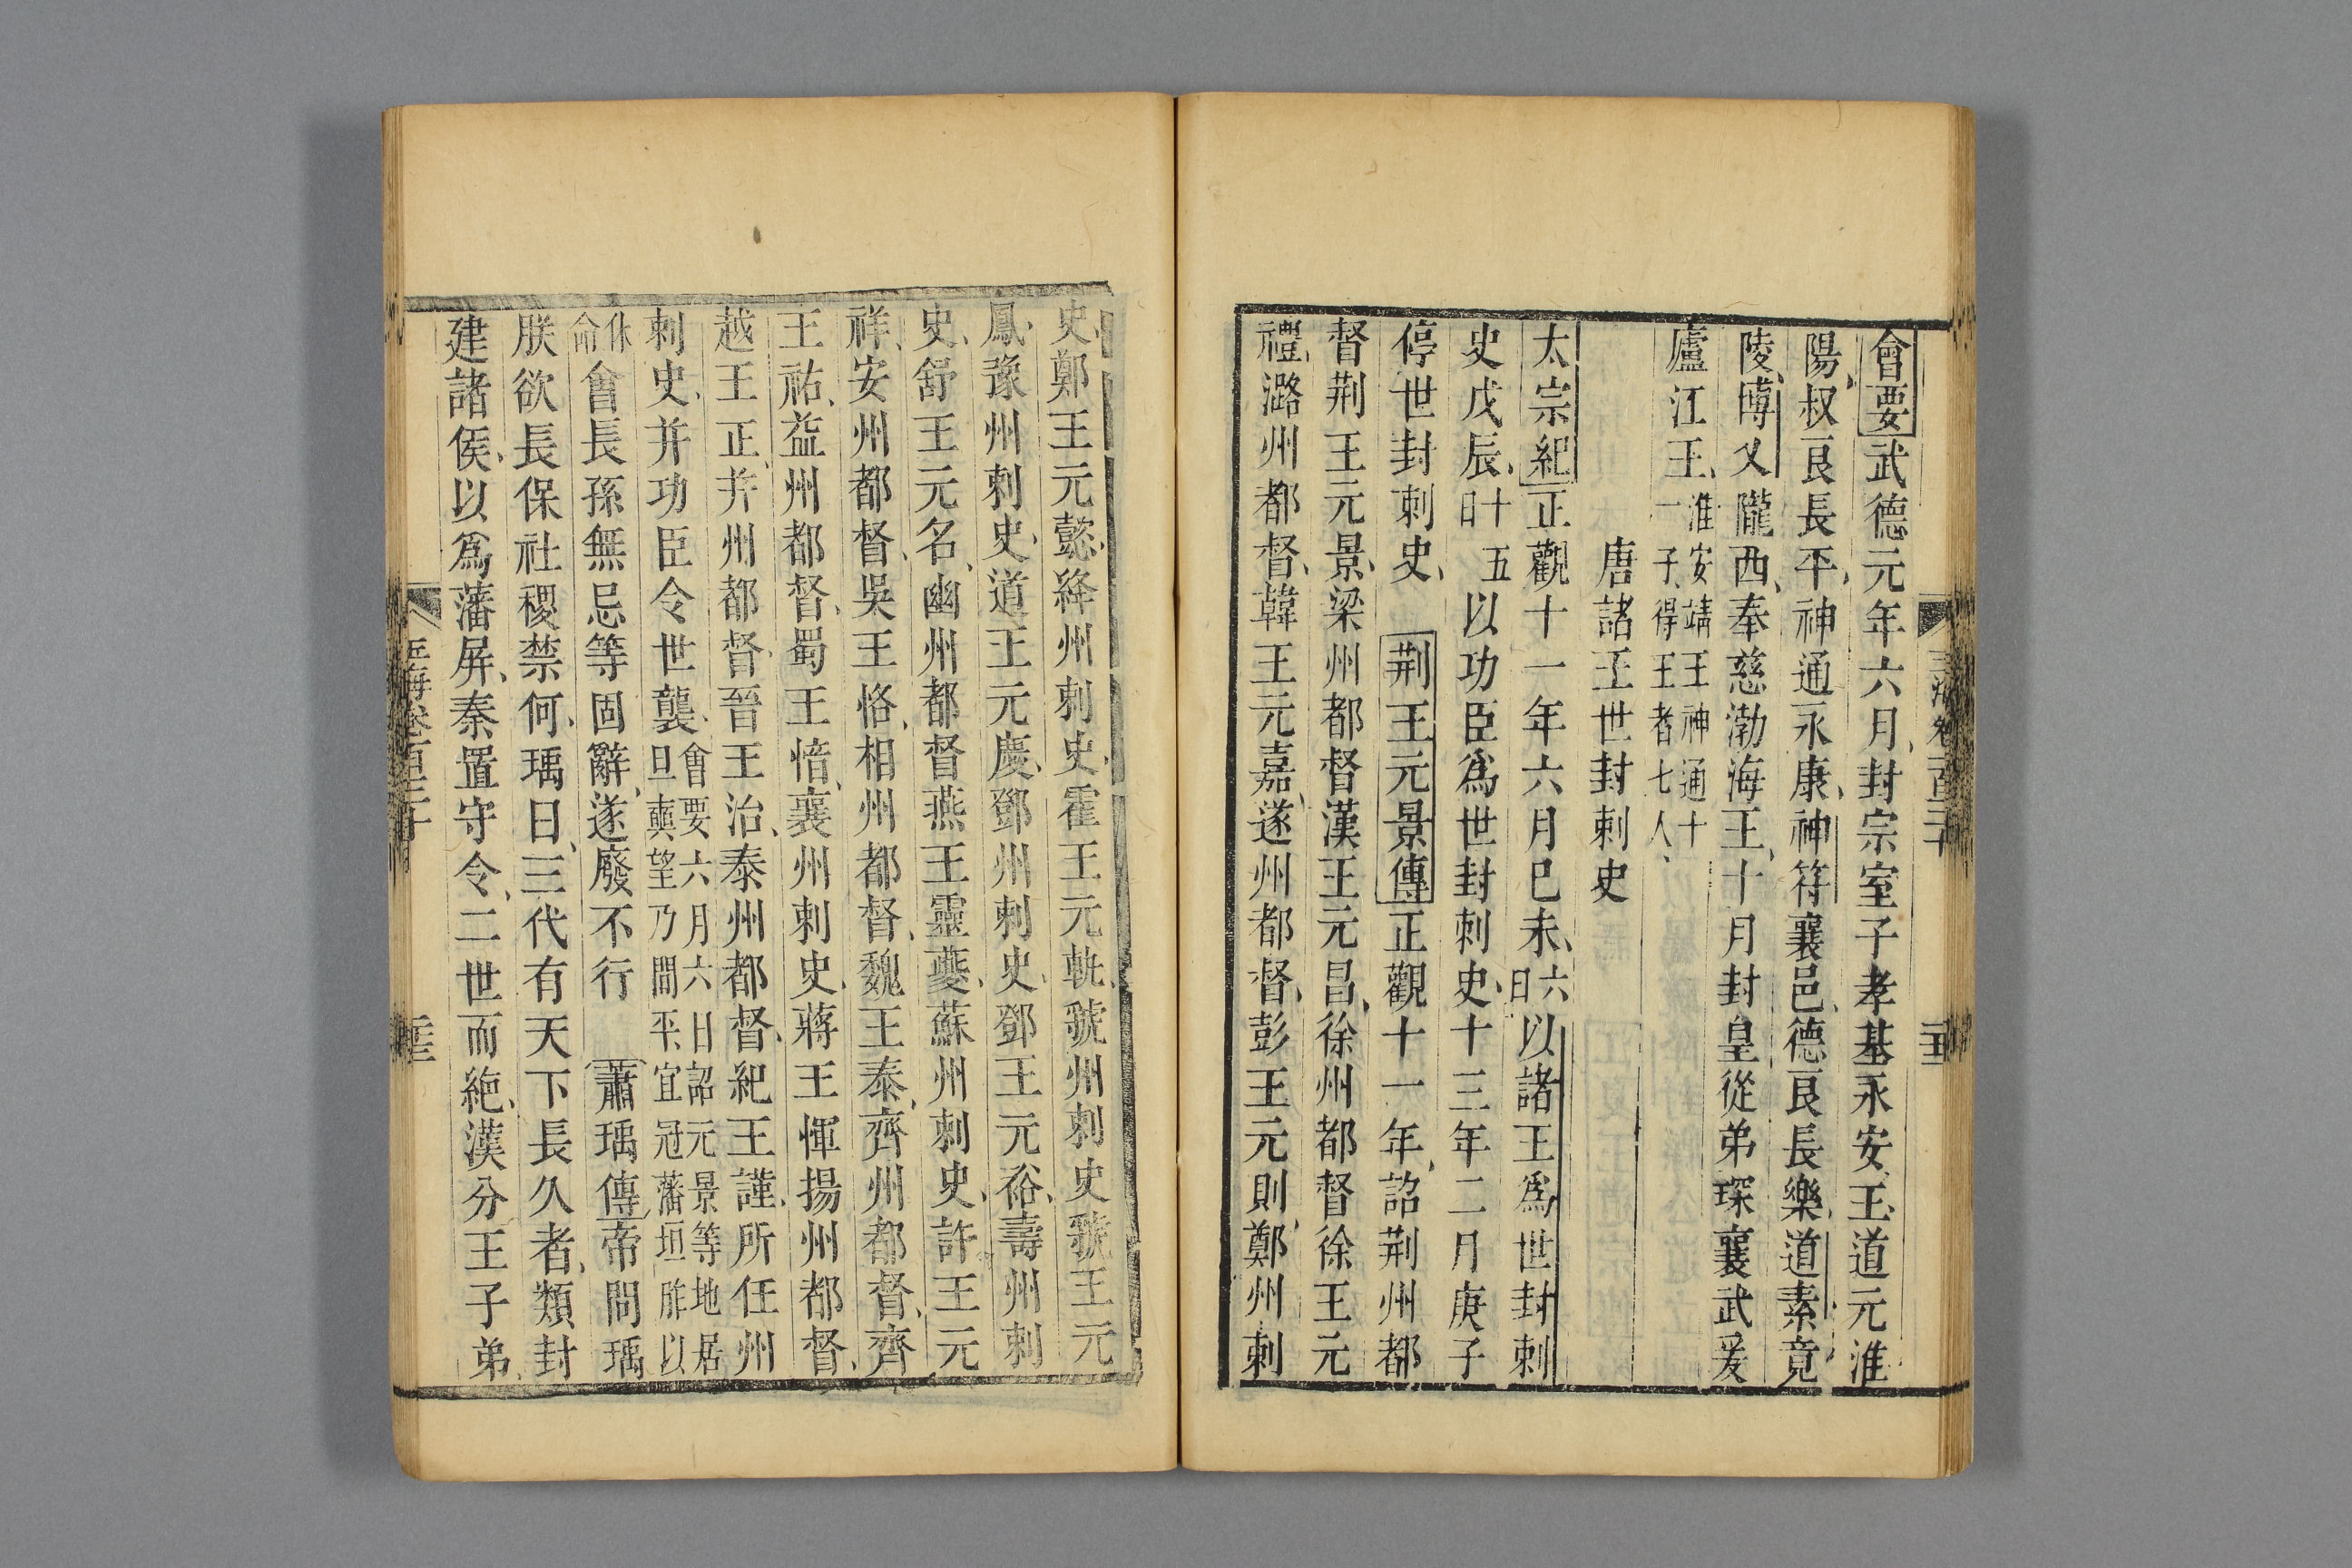 會要武德元年六月封宗室子孝基永安王道元淮
陽叔良長平神通永康神符襄邑德良長樂道素竟
陵博乂隴西奉慈渤海王十月封皇從弟琛襄武爰
廬江王淮安靖王神通十
一子得王者七人
唐諸王世封刺史
太宗紀正觀十一年六月巳未六
日以諸王爲世封刺
史戊辰十五
日以功臣爲世封刺史十三年二月庚子
停世封刺史 荆王元景傳正觀十一年詔荆州都
督荆王元景梁州都督漢王元昌徐州都督徐王元
禮潞州都督韓王元嘉遂州都督彭王元則鄭州刺
史鄭王元懿絳州刺史霍王元軌虢州刺史虢王元
鳳豫州刺史道王元慶鄧州刺史鄧王元裕壽州刺
史舒王元名幽州都督燕王靈夔蘇州刺史許王元
祥安州都督吳王恪相州都督魏王泰齊州都督齊
王祐益州都督蜀王愔襄州刺史蔣王惲揚州都督
越王正并州都督晉王治泰州都督紀王謹所任州
刺史并功臣令世襲會要六月六日詔元景等地居
旦奭望乃間平宜冠藩垣胙以
休
命會長孫無忌等固辭遂廢不行 蕭瑀傳帝問瑀
朕欲長保社稷禁何瑀曰三代有天下長久者類封
建諸侯以爲藩屏秦置守令二世而絶漢分王子弟